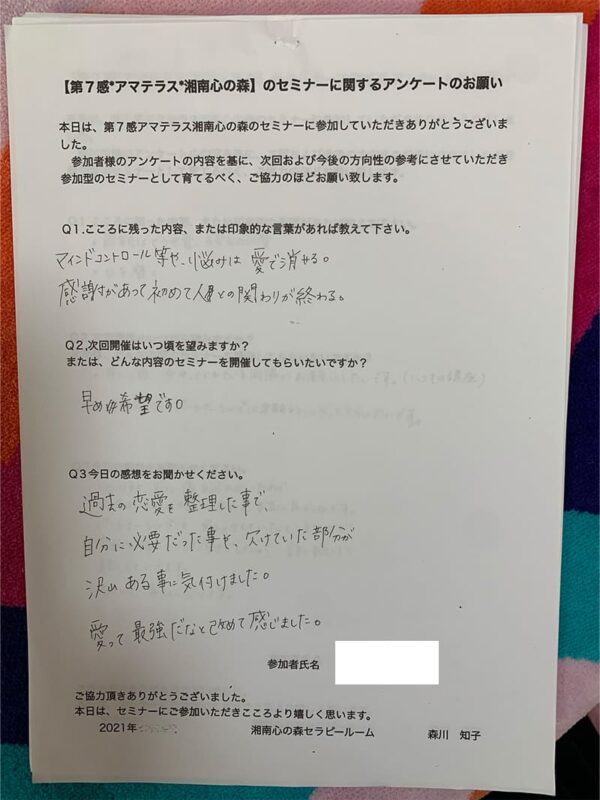 【第７感*アマテラス*湘南心の森】のセミナーに関するアンケートのお願い
本日は、第７感アマテラス湘南心の森のセミナーに参加していただきありがとうございま
した。
参加者様のアンケートの内容を基に、次回および今後の方向性の参考にさせていただき
参加型のセミナーとして育てるべく、ご協力のほどお願い致します。
Ｑ１.こころに残った内容、または印象的な言葉があれば教えて下さい。
マインドコントロール等や、悩みは愛で消せる。
感謝があって初めて人との関わりが終わる。
Ｑ２,次回開催はいつ頃を望みますか？
または、どんな内容のセミナーを開催してもらいたいですか？
早め希望です。
Ｑ３今日の感想をお聞かせください。
過去の恋愛を整理した事で、
自分に必要だった事や、欠けていた部分が
沢山ある事に気付けました。
愛って最強だなと改めて感じました。
参加者氏名
ご協力頂きありがとうございました。
本日は、セミナーにご参加いただきこころより嬉しく思います。
2021年
湘南心の森セラピールーム
森川　知子